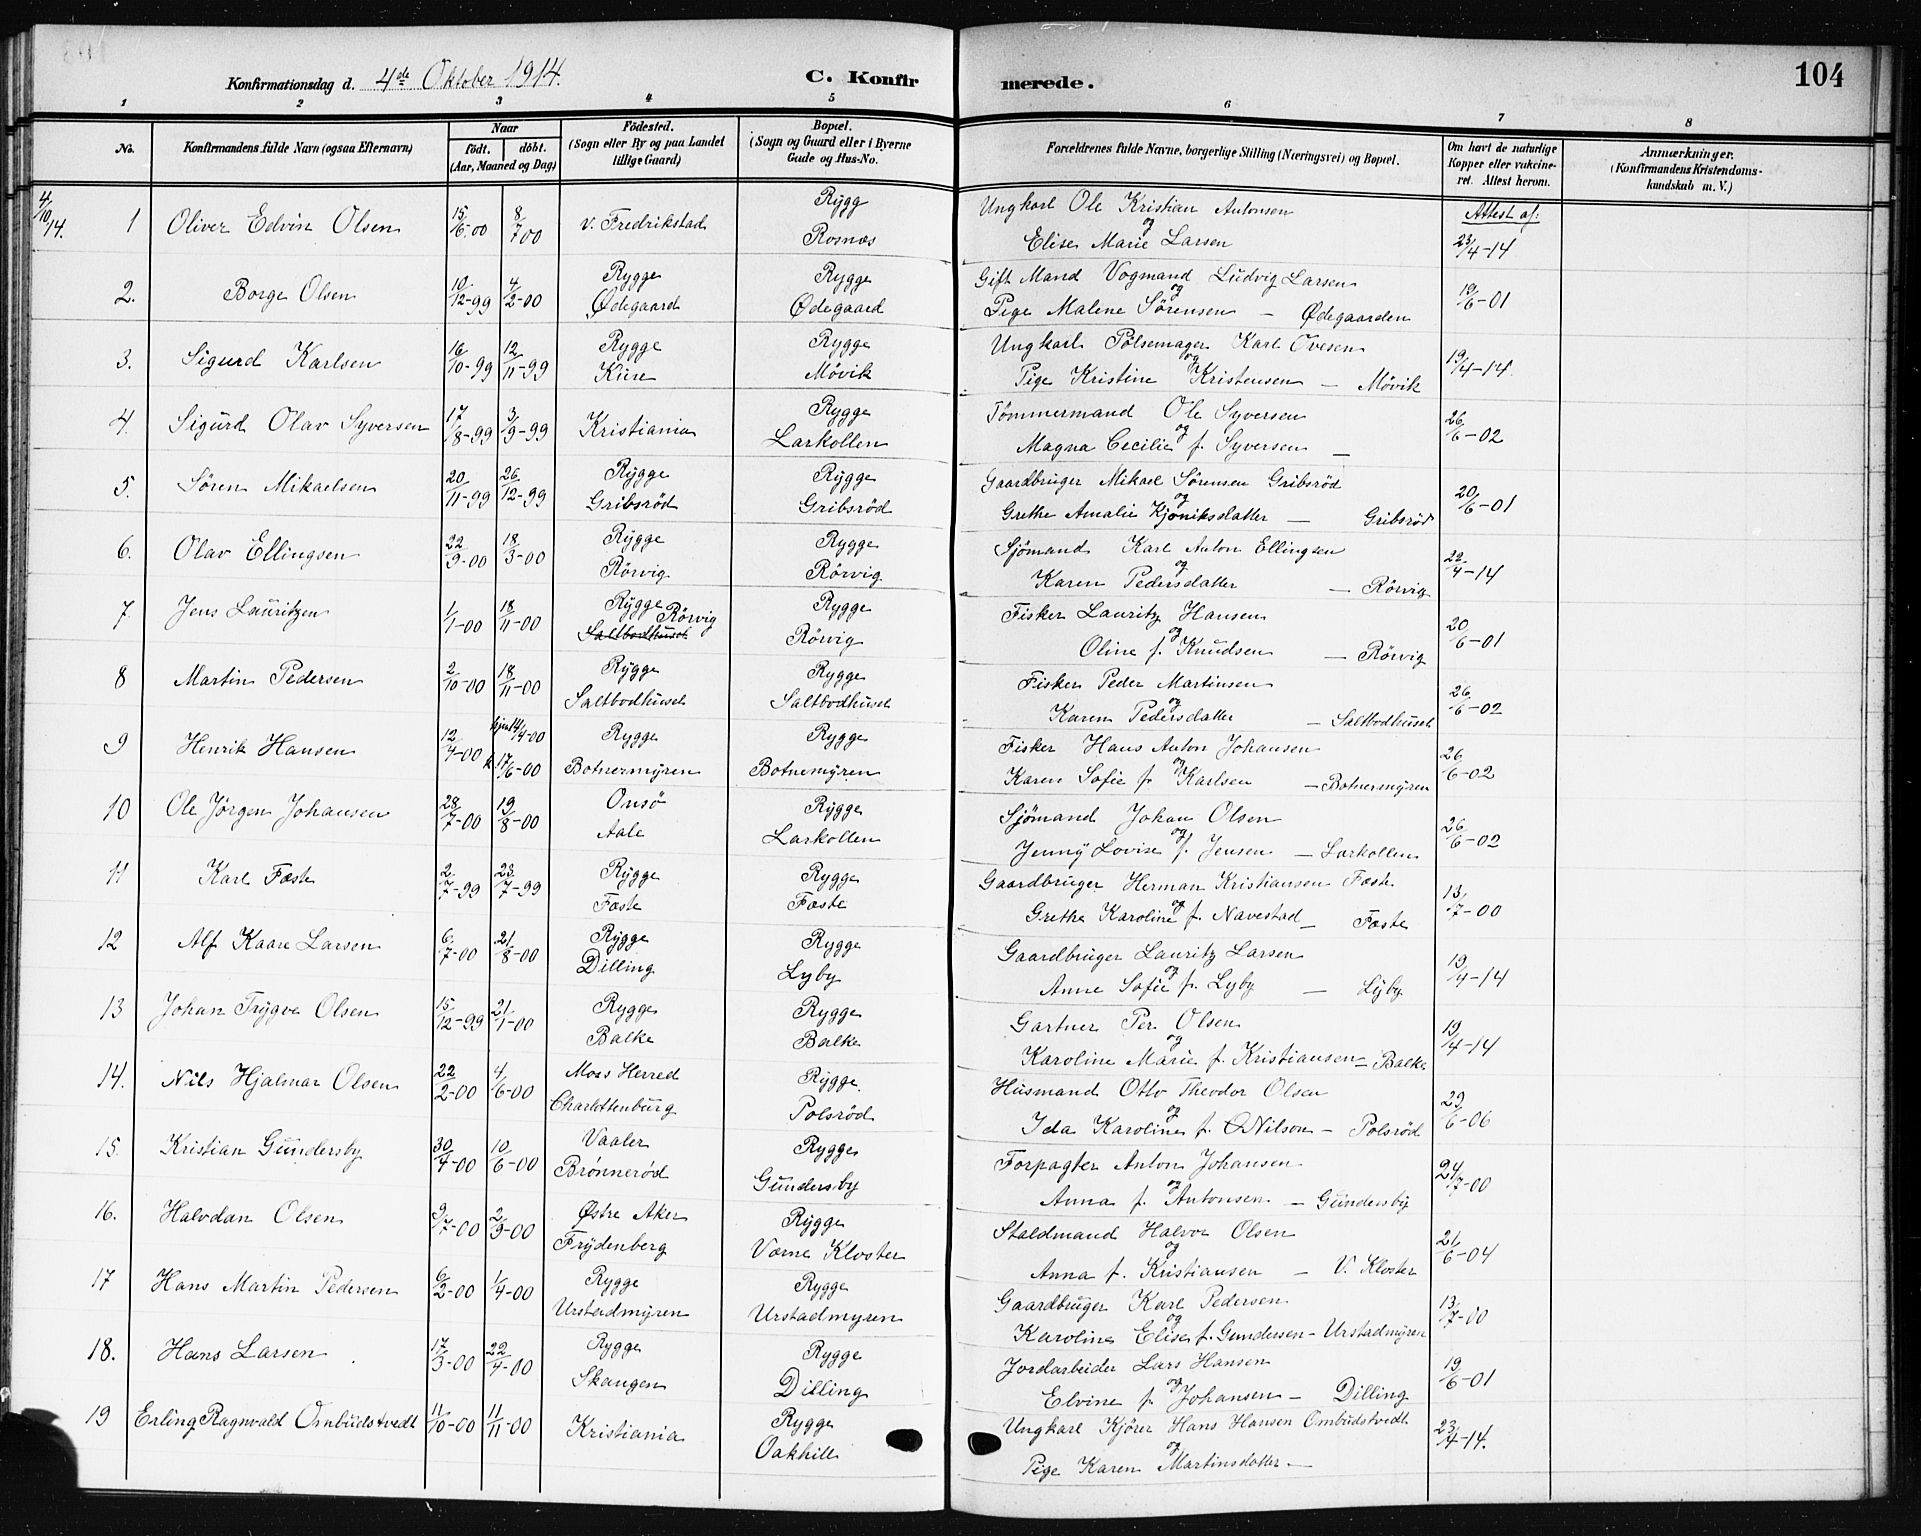 Konfirmationsdag d. 4de Oktober 1914.
C. Konfirmerede.
104
1 2 3 4 5 6 7 8
No.
Konfirmandens fulde Navn (ogsaa Efternavn)
Naar
født. døbt.
(Aar, Maaned og Dag)
Fødested.
(Sogn eller By og paa Landet
tillige Gaard)
Bopæl.
(Sogn og Gaard eller i Byerne
Gade og Hus-No.
Forældrenes fulde Navne, borgerlige Stilling (Næringsvei) og Bopæl.
Om havt de naturlige
Kopper eller vakcine-
ret. Attest herom.
Anmærkninger.
(Konfirmandens Kristendoms-
kundskab m. V.)
4/10 14. 1 Oliver Edvin Olsen 15/6-00 8/7 00 v. Fredrikstad Rygg Ungkarl Ole Kristian Antonsen Attest af:
Rosnæs og Elise Marie Larsen 23/4-14
2. Borge Olsen 10/12-99 4/2-00 Rygge Rygge Gift Mand Vogmand Ludvig Larsen 19/6-01
Ødegaard Ødegaard og Pige Malene Sørensen — Ødegaarden
3. Sigurd Karlsen 16/10-99 12/11-99 Rygge Rygge Ungkarl Pölsemager Karl Ovesen 19/4-14
Kure Mövik og Pige Kristine Kristensen — Mövik
4. Sigurd Olav Syversen 17/8-99 3/9-99 Kristiania Rygge Tömmermand Ole Syversen 26/6-02
Larkollen og Magna Cecilie f. Syversen —
5. Søren Mikaelsen 20/11-99 26/12-99 Rygge Rygge Gaardbruger Mikael Sørensen Gribsröd 20/6-01
Gribsröd Gribsröd og Grethe Amalie Kjöniksdatter — Gribsröd
6. Olav Ellingsen 22/9-00 18/3-00 Rygge Rygge Sjömand Karl Anton Ellingsen 22/4-14
Rörvig Rörvig og Karen Pedersdatter — Rörvig
7. Jens Lauritzen 1/1-00 18/11-00 Rygge Rörvig Rygge Fisker Lauritz Hansen 20/6-01
Saltbodhuset Rörvig og Oline f. Knudsen — Rörvig
8 Martin Pedersen 2/10-00 18/11-00 Rygge Rygge Fisker Peder Martinsen 26/6-02
Saltbodhuset Saltbodhuset og Karen Pedersdatter — Saltbodhuset
9 Henrik Hansen 12/4-00 hjem 14/4-00 Rygge Rygge Fisker Hans Anton Johansen 26/6-02
k 17/6-00 Botnermyren Botnemyren og Karen Sofie f. Karlsen — Botnermyren
10 Ole Jørgen Johansen 28/7-00 19/8-00 Onsö Rygge Sjömand Johan Olsen 26/6-02
Aale Larkollen og Jenny Lovise f. Jensen — Larkollen
11 Karl Fæste 2/7-99 23/7-99 Rygge Rygge Gaardbruger Herman Kristiansen Fæste 13/7-00
Fæste Fæste og Grethe Karoline f. Navestad — Fæste
12 Alf Kaare Larsen 6/7-00 21/8-00 Rygge Rygge Gaardbruger Lauritz Larsen 19/4-14
Dilling Lyby og Anne Sofie f. Lyby — Lyby
13 Johan Trygve Olsen 15/12-99 21/1-00 Rygge Rygge Gartner Per Olsen 19/4-14
Balke Balke og Karoline Marie f. Kristiansen — Balke
14. Nils Hjalmar Olsen 22/2-00 4/6-00 Moss Herred Rygge Husmand Otto Theodor Olsen 29/6-06
Charlottenburg Polsröd og Ida Karoline f. Nilsen — Polsröd
15. Kristian Gundersby 30/4-00 10/6-00 Vaaler Rygge Forpagter Anton Johansen 24/7-00
Brönnerød Gundersby og Anna f. Antonsen — Gundersby
16. Halvdan Olsen 9/7-00 2/9-00 Østre Aker Rygge Staldmand Halvor Olsen 21/6-04
Frydenberg Værne Kloster og Anna f. Kristiansen — V. Kloster
17 Hans Martin Pedersen 6/2-00 1/4-00 Rygge Rygge Gaardbruger Karl Pedersen 13/7-00
Urstadmyren Urstadmyren og Karoline Elise f. Gundersen — Urstadmyren
18. Hans Larsen 17/3-00 22/4-00 Rygge Rygge Jordarbeider Lars Hansen 19/6-01
Skaugen Dilling og Elvine f. Johansen — Dilling
19 Erling Ragnvald Ombudstvedt 11/10-00 11/11-00 Kristiania Rygge Ungkarl Kjörer Hans Hansen Ombudstvedt 23/4-14.
Oakhill og Pige Karen Martinsdatter —